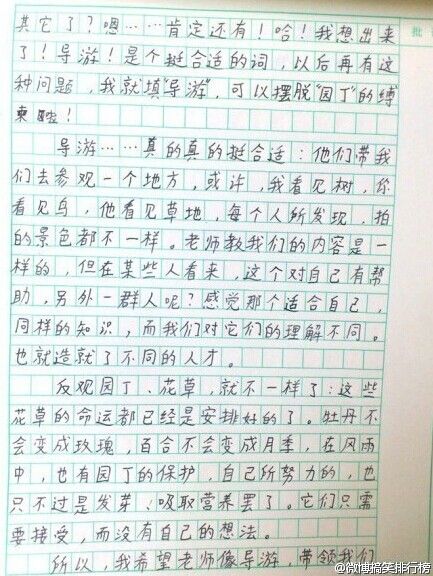 其它了？嗯……肯定还有！哈！我想出来
了！导游！是个挺合适的词，以后再有这
种问题，我就填"导游"，可以摆脱"园丁"的缚
束啦！
导游……真的真的挺合适：他们带我
们去参观一个地方，或许，我看见树，你
看见鸟，他看见草地，每个人所发现、拍
的景色都不一样。老师教我们的内容是一
样的，但在某些人看来，这个对自己有帮
助，另外一群人呢？感觉那个适合自己，
同样的知识，而我们对它们的理解不同。
也就造就了不同的人才。
反观园丁、花草，就不一样了：这些
花草的命运都已经是安排好的了。牡丹不
会变成玫瑰，百合不会变成月季，在风雨
中，也有园丁的保护，自己所努力的，也
只不过是发芽、吸取营养罢了。它们只需
要接受，而没有自己的想法。
所以，我希望老师像导游，带领我们
批
@微博搞笑排行榜